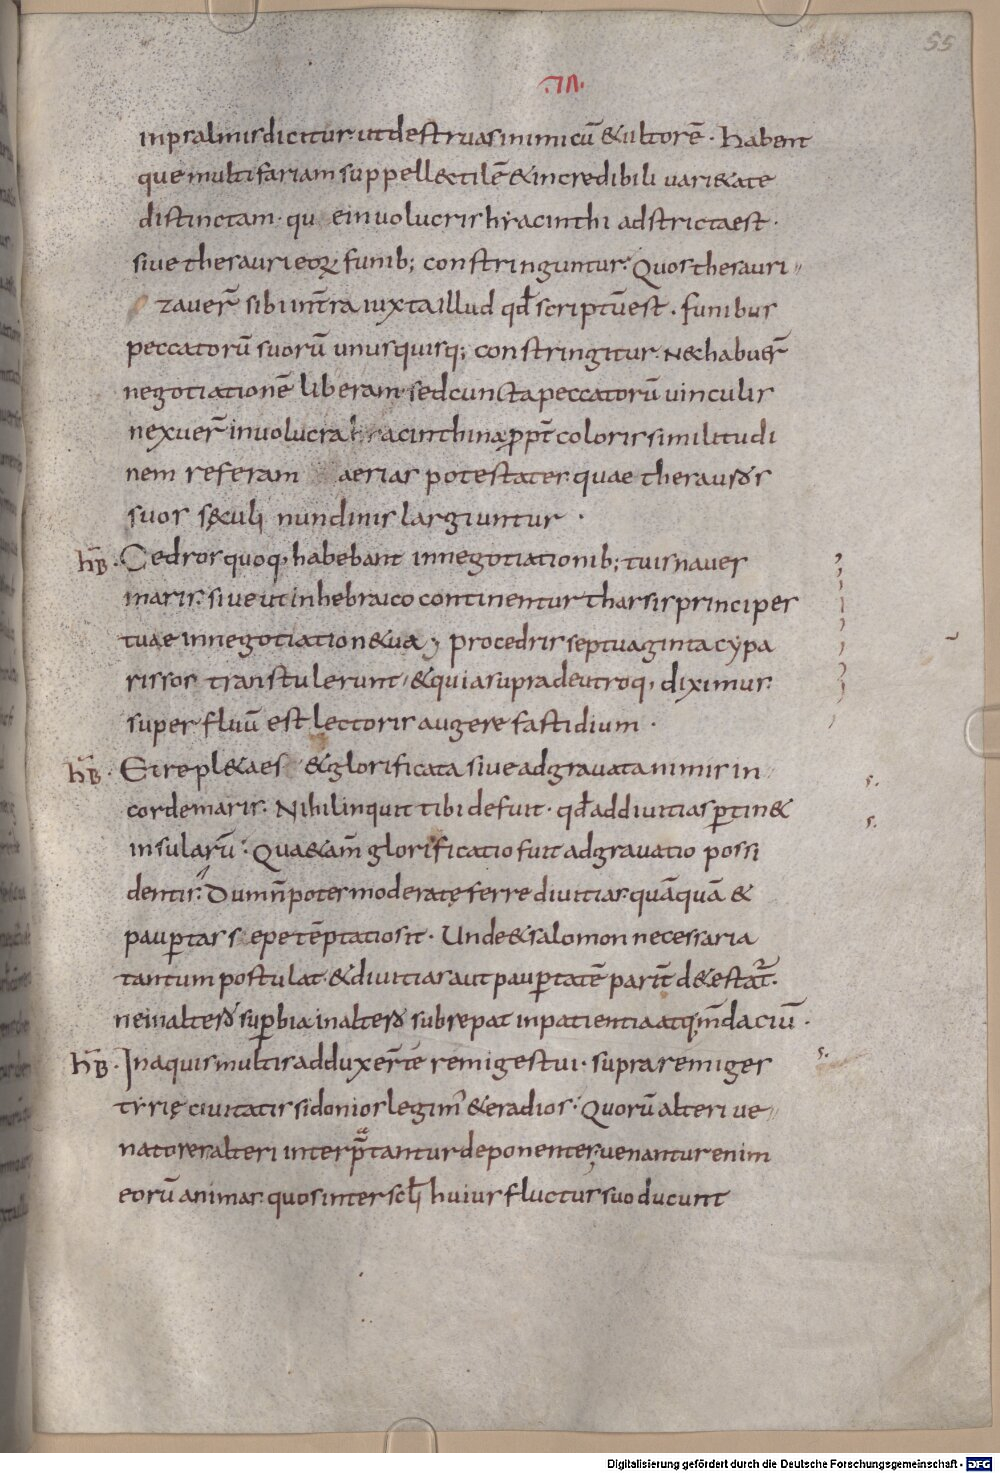 55
·VII·
inpsalmis dicitur· ut destruas inimicū & ultorē· habent
que multifariam suppell&tilē & incredibili uari&ate
distinctam· qu  einuolucris hyacinthi adstricta est·
siue thesauri eoꝝ funib; constringuntur· Quos thesauri
zauer̄ sibi int̄ra iuxta illud qd̄ scriptū est· funibus
peccatorū suorū unusquisq; constringitur· Nec habuer̄
negotiationē liberam· sed cuncta peccatorū uinculis
nexuer̄ inuolucra hyacinthina ꝓpt̄ coloris similitudi
nem referam aerias potestates· quae thesauros
suos sęculi nundinis largiuntur ·
hB̄· Cedros quoq, habebant innegotiationib; tuis naues
maris· siue ut inhebraico continentur tharsis principes
tuae innegotiation& ua ; Procedris septuaginta cypa
rissos transtulerunt, & quia supra deutroq, diximus
super fluū est lectoris augere fastidium ·
hB̄· Et repl&a es & glorificata siue adgrauata nimis in
corde maris· Nihil inquit tibi defuit· qd̄ addiuitias ꝑtin&
insularū· Qua&am̄ glorificatio fuit adgrauatio possi
dentis· Dum n̄ potes moderatę ferre diuitias· quāquā &
pauꝑtas s epe tēptatio sit· Unde & salomon necessaria
tantum postulat· & diuitias aut pauꝑtatē parit̄ d&estat̄·
ne inaltero suꝑbia inaltero subrepat inpatientia atq, m̄daciū·
hB̄· In aquis multis adduxer̄ te remiges tui· supra remiges
tyrię ciuitatis sidonios legim' & eradios· Quorū alteri ue
natores alteri interp̄tantur deponentes, uenantur enim
eorū animas· quos inter scl̄i huius fluctus suo ducunt
Digitalisierung gefördert durch die Deutsche Forschungsgemeinschaft - DFG